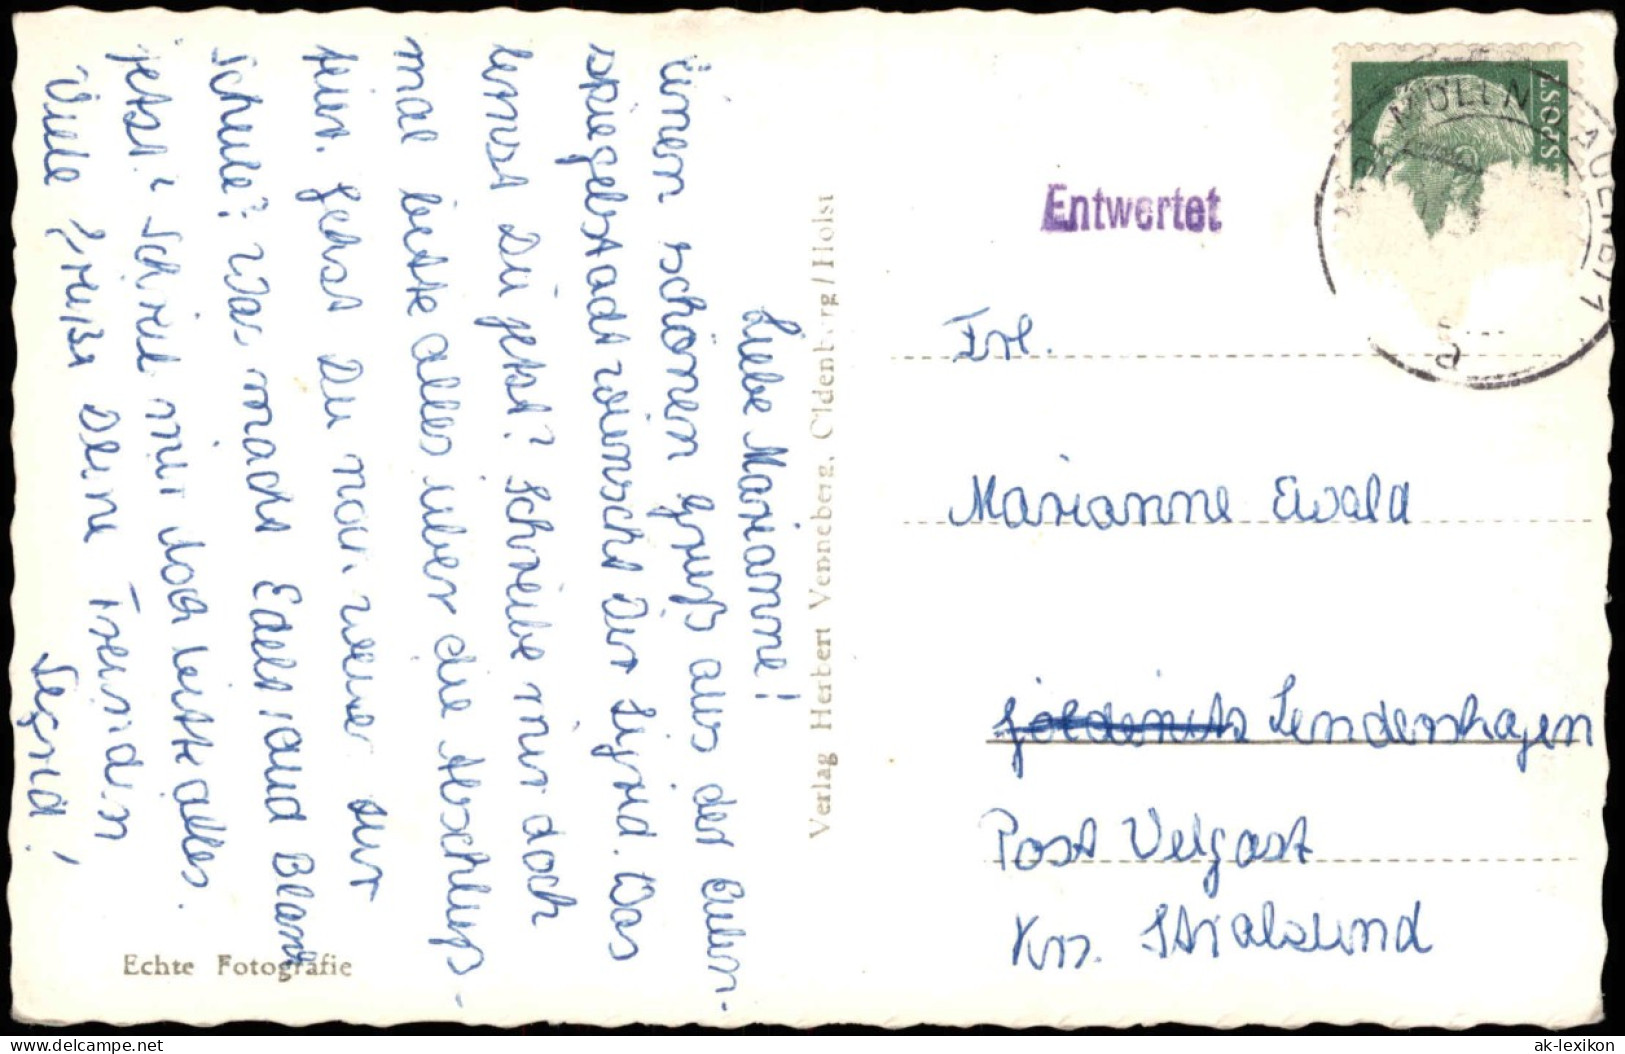 Liebe Marianne!
Einen schönen Gruß aus der Eulen-
spiegelstadt wünscht Dir Sigrid. Was
lernst Du jetzt? Schreibe mir doch
mal bitte alles über die Abschluß-
feier. Gehst Du noch weiter zur
Schule? Was macht Edeltraud Blank
jetzt? Schreib mir doch bitte alles.
Viele Grüße Deine Freundin
Sigrid!
Echte Fotografie
Verlag Herbert Venneberg, Oldenburg/Holst
Entwertet
MÖLLN
SPOST
Frl.
Marianne Ewald
Lendershagen
Post Velgast
Krs. Stralsund
ak-lexikon.de